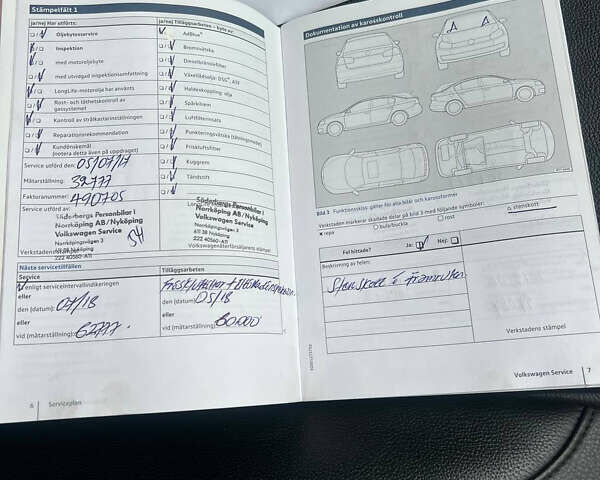 Stämpelfält 1
ja/nej Har utförts:
Oljebytesservice
Inspektion
med motoroljebyte
med utvidgad inspektionsomfattning
LongLife-motorolja har använts
Rost- och täthetskontroll av
gassystemet
Kontroll av strålkastarinställningen
Reparationsrekommendation
Kundönskemål
(notera detta även på uppdraget)
Service utförd den: 05/07/17
Mätarställning: 32777
Fakturanummer: 490705
Service utförd av:
Söderbergs Personbilar i
Norrköping AB/Nyköping
Volkswagen Service
Norrköpingsvägen 3
611 38 Nyköping
222 40560-A11
Verkstadens
ja/nej Tilläggsarbeten – byte av:
AdBlue®
Bromsvätska
Dieselbränslefilter
Växellådsolja: DSG®, ATF
Haldexkoppling: olja
Spärkilrem
Luftfilterinsats
Punkteringsvätska (tätningsmedel)
Friskluftsfilter
Kuggrem
Tändstift
Söderbergs Personbilar i
Norrköping AB/Nyköping
Volkswagen Service
Norrköpingsvägen 3
611 38 Nyköping
222 40560-A11
Volkswagenåterförsäljarens stämpel
Nästa servicetillfällen
Service
enligt serviceintervallindikeringen
eller
den (datum): 07/18
eller
vid (mätarställning): 62777
Tilläggsarbeten
den (datum): 05/18
eller
vid (mätarställning): 60.000
6 Serviceplan
Dokumentation av karosskontroll
Bild 3 Funktionsskiss: gäller för alla bilar och karossformer
Verkstaden markerar skadade delar på bild 3 med följande symboler:
× repa
○ bula/buckla
□ rost
△ stenskott
Fel hittade?
Ja:
Nej:
Beskrivning av felen:
Stenskott i framrutan
Verkstadens stämpel
Volkswagen Service 7